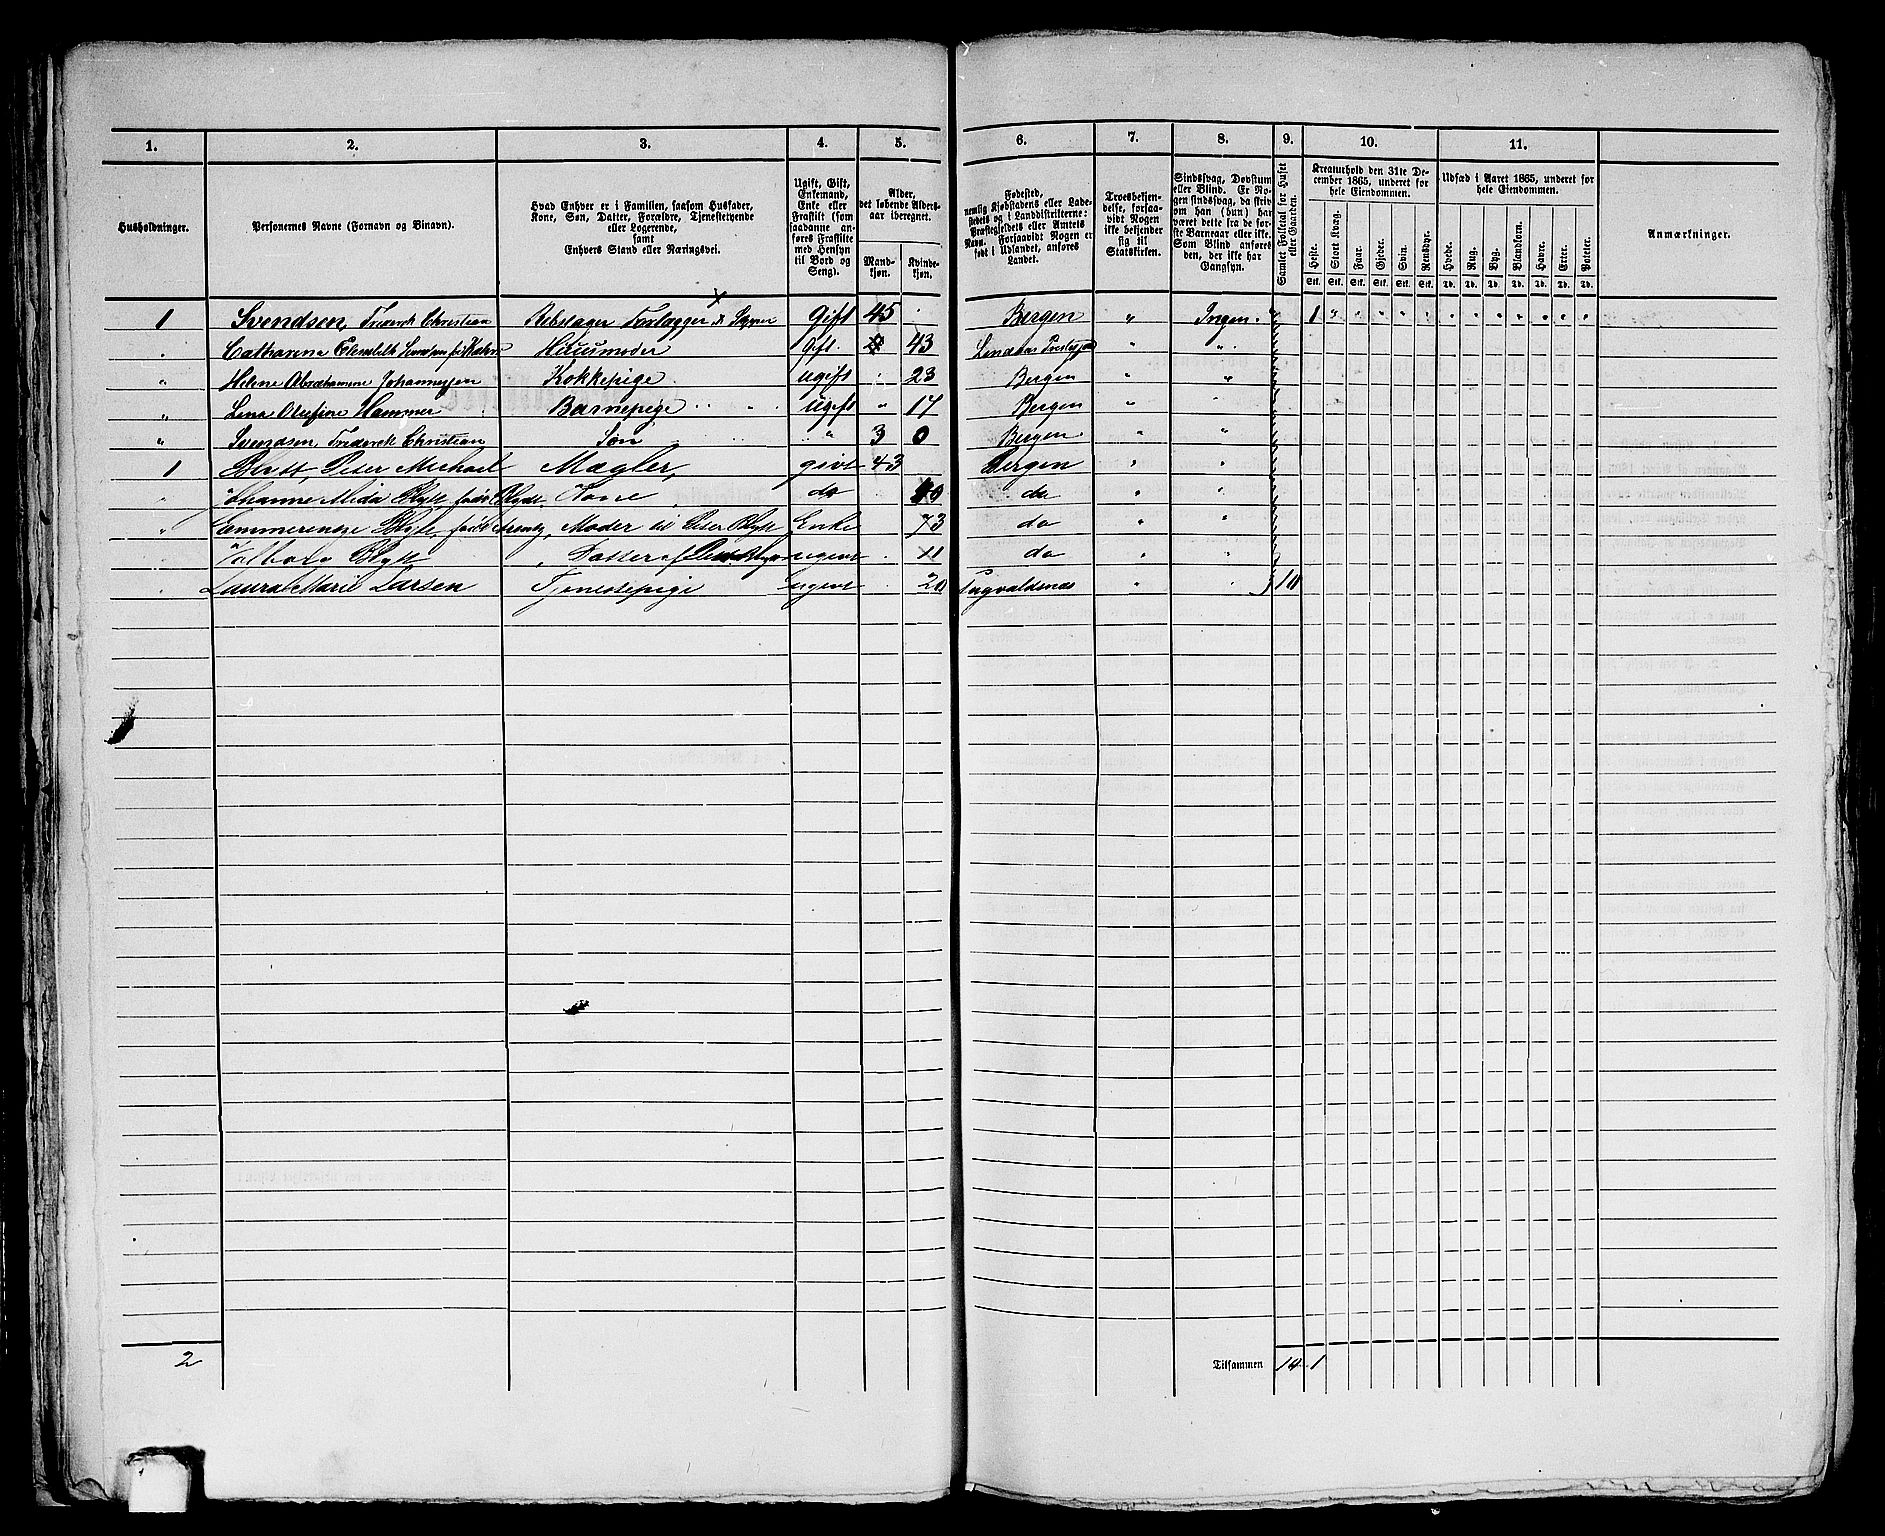 1. 2. 3. 4. 5. 6. 7. 8. 9. 10. 11.
Husholdninger.
Personernes Navne (Fornavn og Binavn).
Hvad Enhver er i Familien, saasom Husfader,
Kone, Søn, Datter, Forældre, Tjenestetyende
eller Logerende,
samt
Enhvers Stand eller Næringsvei.
Ugift, Gift,
Enkemand,
Enke eller
Fraskilt (som
saadanne an-
føres Fraskilte
med Hensyn
til Bord og
Seng).
Alder,
det løbende Alders-
aar iberegnet.
Mand-
kjøn.
Kvinde-
kjøn.
Fødested,
nemlig Kjøbstadens eller Lade-
stedets og i Landdistrikterne:
Præstegjeldets eller Amtets
Navn. Forsaavidt Nogen er
født i Udlandet, anføres
Landet.
Troesbekjen-
delse, forsaa-
vidt Nogen
ikke bekjender
sig til
Statskirken.
Sindssvag, Døvstum
eller Blind. Er No-
gen sindssvag, da skriv
om han (hun) har
været dette fra de før-
ste Barneaar eller ikke.
Som Blind anføres
den, der ikke har
Gangsyn.
Samlet Folketal for Huset
eller Gaarden.
Kreaturhold den 31te De-
cember 1865, underet for
hele Eiendommen.
Heste. Stort Kvæg. Faar. Gjeder. Svin. Rensdyr.
Stk. Stk. Stk. Stk. Stk. Stk.
Udsæd i Aaret 1865, underet for
hele Eiendommen.
Hvede. Rug. Byg. Blandkorn. Havre. Erter. Poteter.
Td. Td. Td. Td. Td. Td. Td.
Anmærkninger.
1 Svendsen, Frederck Christian Rebslager Forlægger & Skipper Gift 45 Bergen " Ingen. 1
Catharena Elesabeth Huusmoder Gift. 43 Lindaas " "
" Helene Abrahamine Johannessen Kokkepige ugift 23 Bergen " "
" Lena Olufine Hammer Barnepige ugift " 17 Bergen " "
" Svendsen Frederck Christian Søn " 3 0 Bergen " "
1 Blytt, Peter Michael Mægler, givt 43 Bergen " "
Johanne Mida Blytt, født Blydt, Kone, do 40 do " "
" Blytt, født Arentz, Moder til Peter Blytt Enke 73 do " "
Valborg Blytt Datter af Peter Blytt ugivt 11 do " "
Laura Marie Larsen Tjenestepige ugivt 20 Ingvaldsnæs " 10
2 Tilsammen 10 1